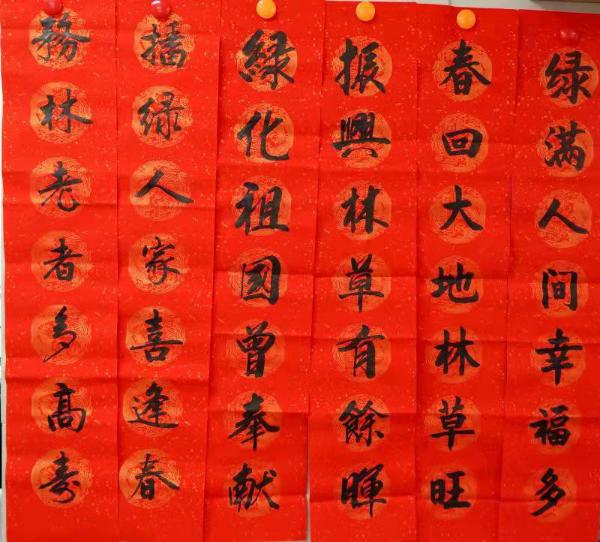 務林老者多髙寿
播绿人家喜逢春
緑化祖國曾奉献
振興林草有餘暉
春回大地林草旺
绿满人间幸福多